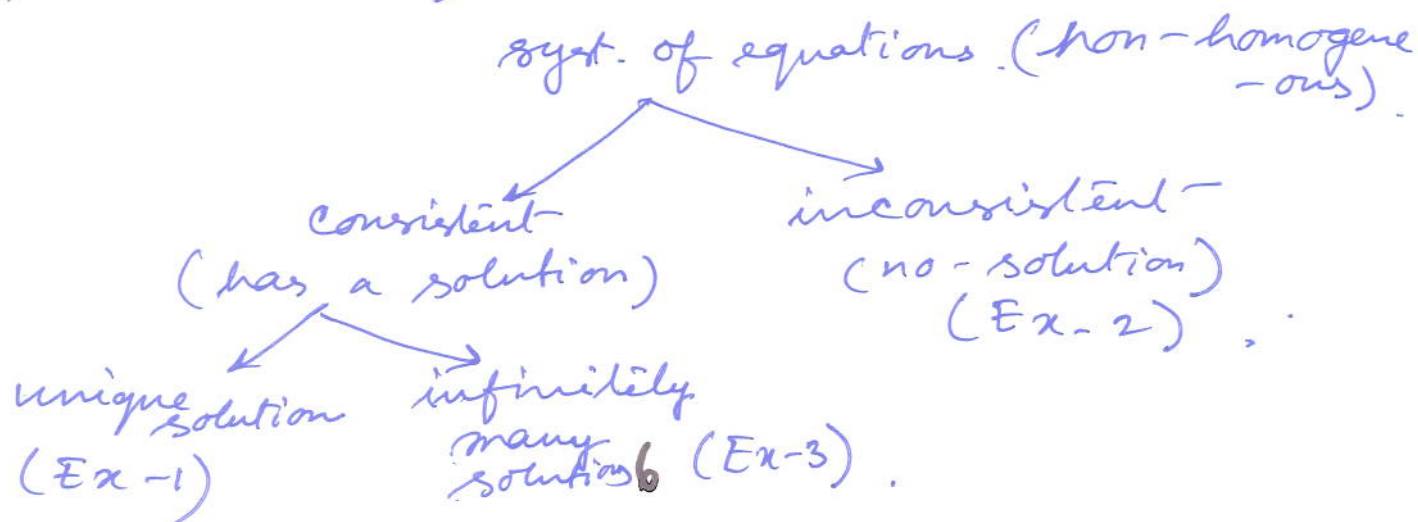 syst. of equations. (non-homogene
-ous).
consistent
(has a solution)
inconsistent
(no-solution)
(Ex-2).
unique
solution
(Ex-1)
infinitely
many
solutions (Ex-3).